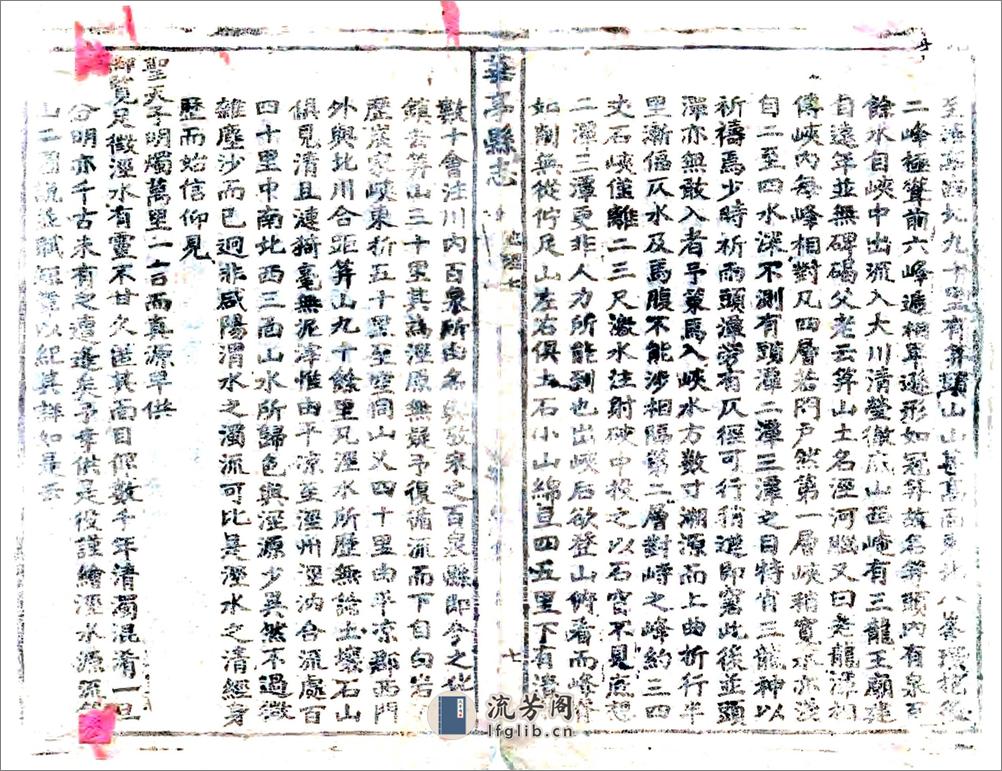 至 北九十里有笄頭山山甚高而東 八峯環抱後
二峰極聳前六峰遞相 遜形如冠笄故名笄頭內有泉百
餘水自峽中出流入大川清瑩徹底山西崦有三龍王廟建
自遠年並無碑碣父老云笄山土名涇河腦又曰老龍潭相
傳峽內每峰相對凡四層若門戶然第一層峽稍寬水亦淺
自二至四水深不測有頭潭二潭三潭之目特肖三龍神以
祈禱焉少時祈雨頭潭旁有仄徑可行稍進即窒此後並頭
潭亦無敢入者予策馬入峽水方数寸溯源而上曲折行半
里漸偪仄水及馬腹不能涉相隔第二層對峙之峰約三四
丈石峽僅離二三尺激水注射峽中投之以石窅不見底想
二潭三潭更非人力所能到也出峽后欲登山俯看而峰
如削無從佇足山左右俱土石小山綿亘四五里下有清
華亭縣志
地理七
七
數十會注川內百泉所由名與 之百泉縣即今之化
鎮去笄山三十里其為涇原無疑予復循流而下自白岩
歷 家峽東折五十里至空同山又四十里由平凉郡西門
外與北川合距笄山九十餘里凡涇水所歷無論土壤石山
俱見清且漣猗毫無泥滓惟由平凉至涇州涇汭合流處百
四十里中南北西三面山水所歸色與涇源少異然不過微
雜塵沙而已迥非咸陽渭水之濁流可比是涇水之清經身
歷而始信仰見
聖天子明燭萬里一言而真源早供
御覽足徵涇水有靈不甘久 其面目俾數千年清濁混淆一旦
分明亦千古未有之遭逢矣予幸供是役謹繪涇水源流
山二圖 以紀其詳如是云
流芳阁
lfglib.cn